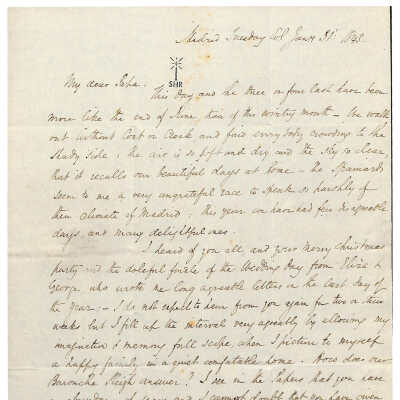 Madrid Tuesday Jany 31st 1843
My dear Papa.
SHR
This day and the three or four last have been
more like the end of June than of the wintry month - We walk
out without Coat or Cloak and find every body crowding to the
Shady Side: the air is so soft and dry and the sky so clear,
that it recalls our beautiful days at home - the Spaniards
seem to me a very ungrateful race to speak so harshly of
their climate of Madrid: this year we have had few disagreeable
days, and many delightful ones.
I heard of you all and your merry Christmas
party and the doleful finale of the Wedding Day from Eliza &
George who wrote me long agreeable letters on the last day of
the Year - I do not expect to hear from you again for two or three
weeks but I fill up the interval very agreeably by allowing my
imagination & memory full scope, when I picture to myself
a happy family in a quiet comfortable home. How does our
Barouche Sleigh answer? I see in the Papers that you have
of snow and I cannot doubt that you have even